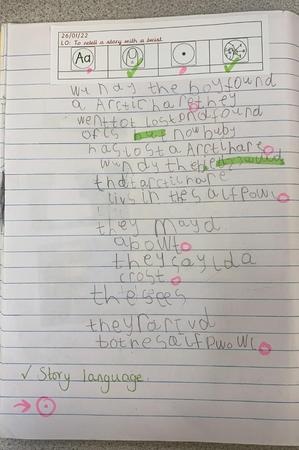 26/01/22
LO: To retell a story with a twist
Aa
wu n day the boy found
a Arctic hare they
went tot lost and found
ofis but now buby
has lost a Arctic hare
wun day the
that arctic hare
livs in the salf powl
they mayd
a bowt
they sayld a
crost
the sees
they rarivd
to the salf pwowl
✓ Story language.